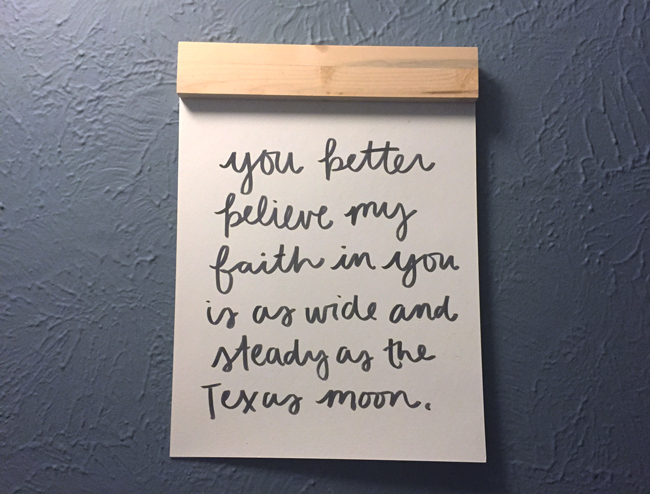 you better
believe my
faith in you
is as wide and
steady as the
Texas moon.